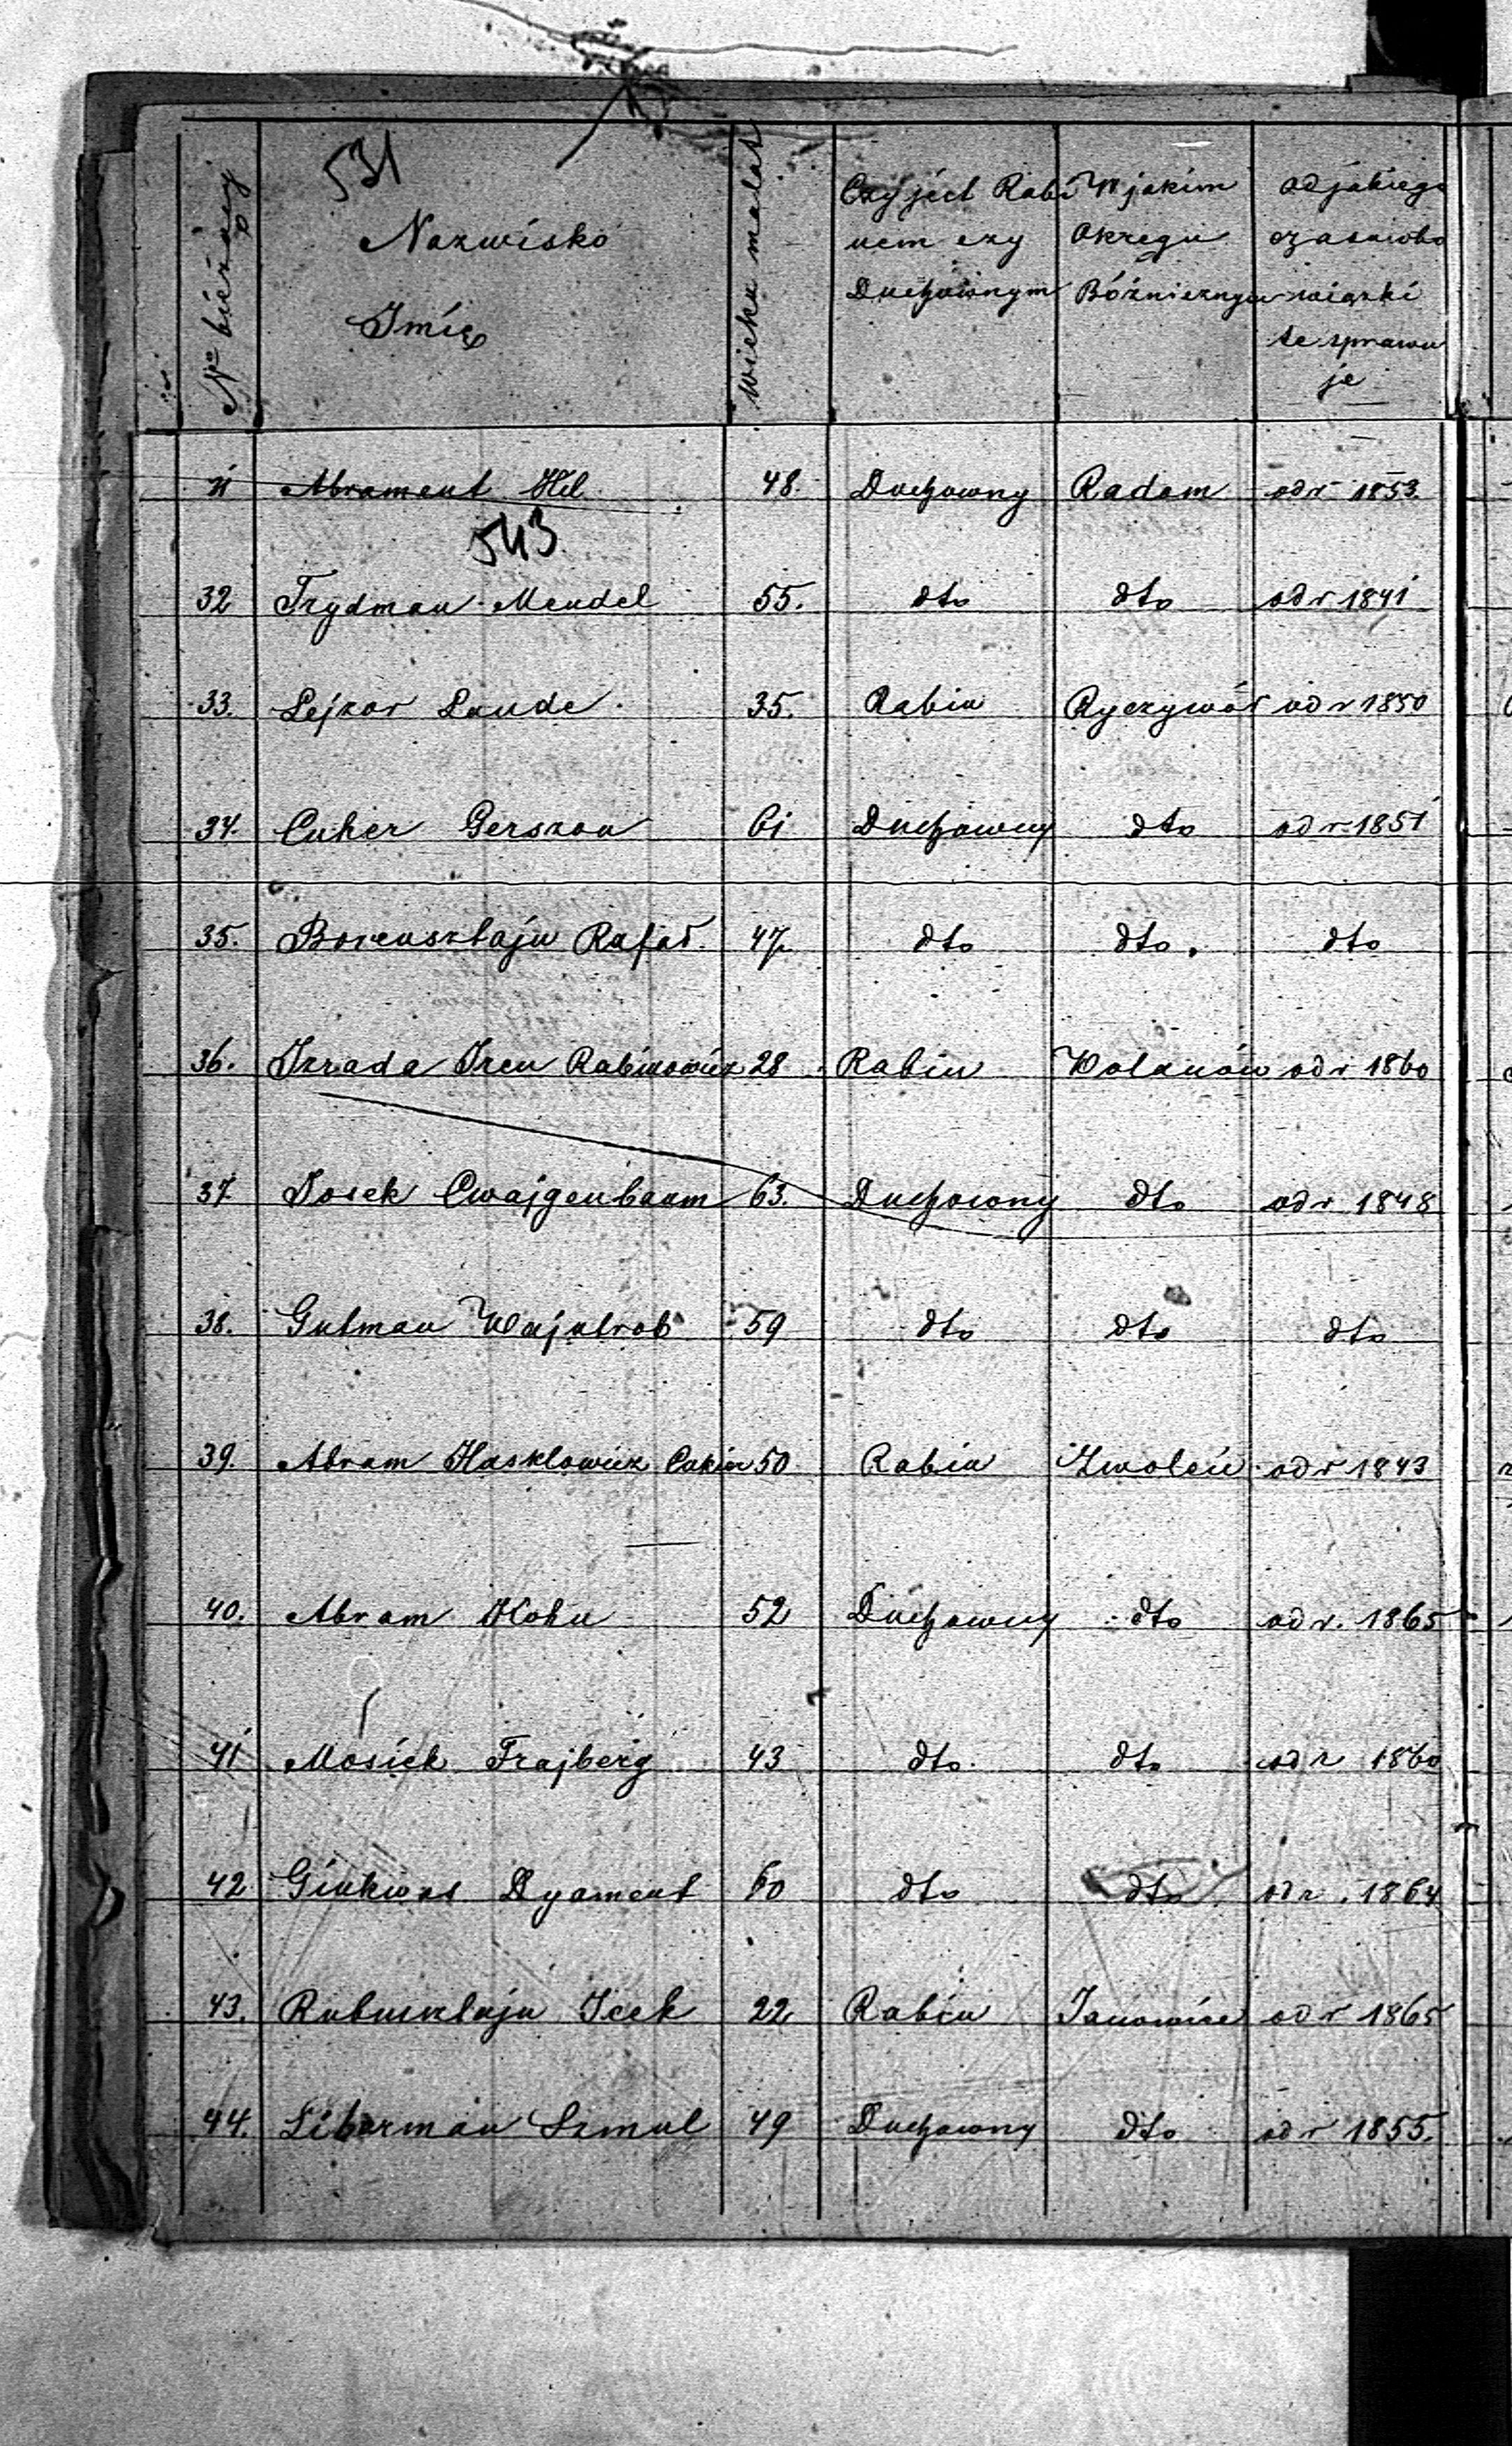 531
No bieżący
Nazwisko
Imię
wieku ma lat
Czy jest Rabi
nem czy
Duchownym
W jakim
Okręgu
Bóżniczym
od jakiego
czasu obo
wiązki
te sprawu
je
31 Abrament Hil 48. Duchowny Radom od r 1853.
543
32 Frydman Mendel 55. dto dto od r 1841
33. Lejzor Laude 35. Rabin Ryczywół od r 1850
34. Cukier Gerszon 61 Duchowny dto od r 1851
35. Borensztajn Rafał. 47. dto dto. dto
36. Izrada Icen Rabinowicz 28 Rabin Wolanów od r 1860
37 Josek Cwajgenbaum 63. Duchowny dto od r 1848
38. Gutman Wajntrob 59 dto dto dto
39. Abram Hasklowicz Cukier 50 Rabin Zwoleń od r 1843
40. Abram Kohn 52 Duchowny dto od r. 1865
41 Mosiek Frajberg 43 dto. dto od r 1860
42 Ginkwas Dyament 60 dto dto od r. 1864
43. Rubinsztajn Icek 22 Rabin Janowiec od r 1865
44. Liberman Szmul 49 Duchowny dto od r 1855.